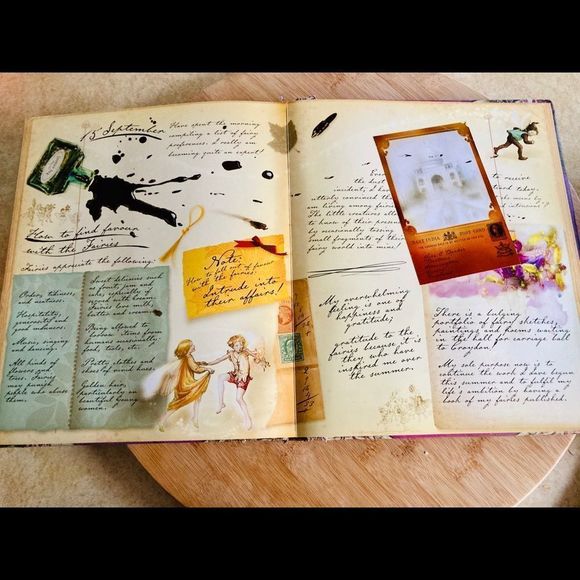 15 September
Have spent the morning
compiling a list of fairy
preferences. I really am
becoming quite an expert!
How to find favour
with the Fairies
Fairies appreciate the following:
Order, tidiness,
and neatness.
Hospitality,
generosity and
good manners.
Music, singing
and dancing.
All kinds of
flowers and
trees. Fairies
may punish
people who abuse
them.
Sweet delicacies such
as fruits, jam and
cakes, especially if
served with cream.
Fairies love milk,
butter and cream.
Being allowed to
borrow items from
humans occasionally.
Food, tools, etc.
Pretty clothes and
shoes of vivid hues.
Golden hair,
particularly on
beautiful young
women.
Note:
How to fall out of favour
with the fairies.
Intrude into
their affairs!
the best
incident, I ha
utterly convinced tha
am living among fairi
The little creatures allow
to know of their presen
by occasionally tossing
small fragments of their
fairy world into mine!
to receive
today,
mine by
BARE INDIA POST CARD
My overwhelming
feeling is one of
happiness and
gratitude;
gratitude to the
fairies because it is
they who have
inspired me over
the summer.
There is a bulging
portfolio of fairy sketches,
paintings and poems waiting
in the hall for carriage back
to Croydon.
My sole purpose now is to
continue the work I have begun
this summer and to fulfil my
life's ambition by having a
book of my fairies published.